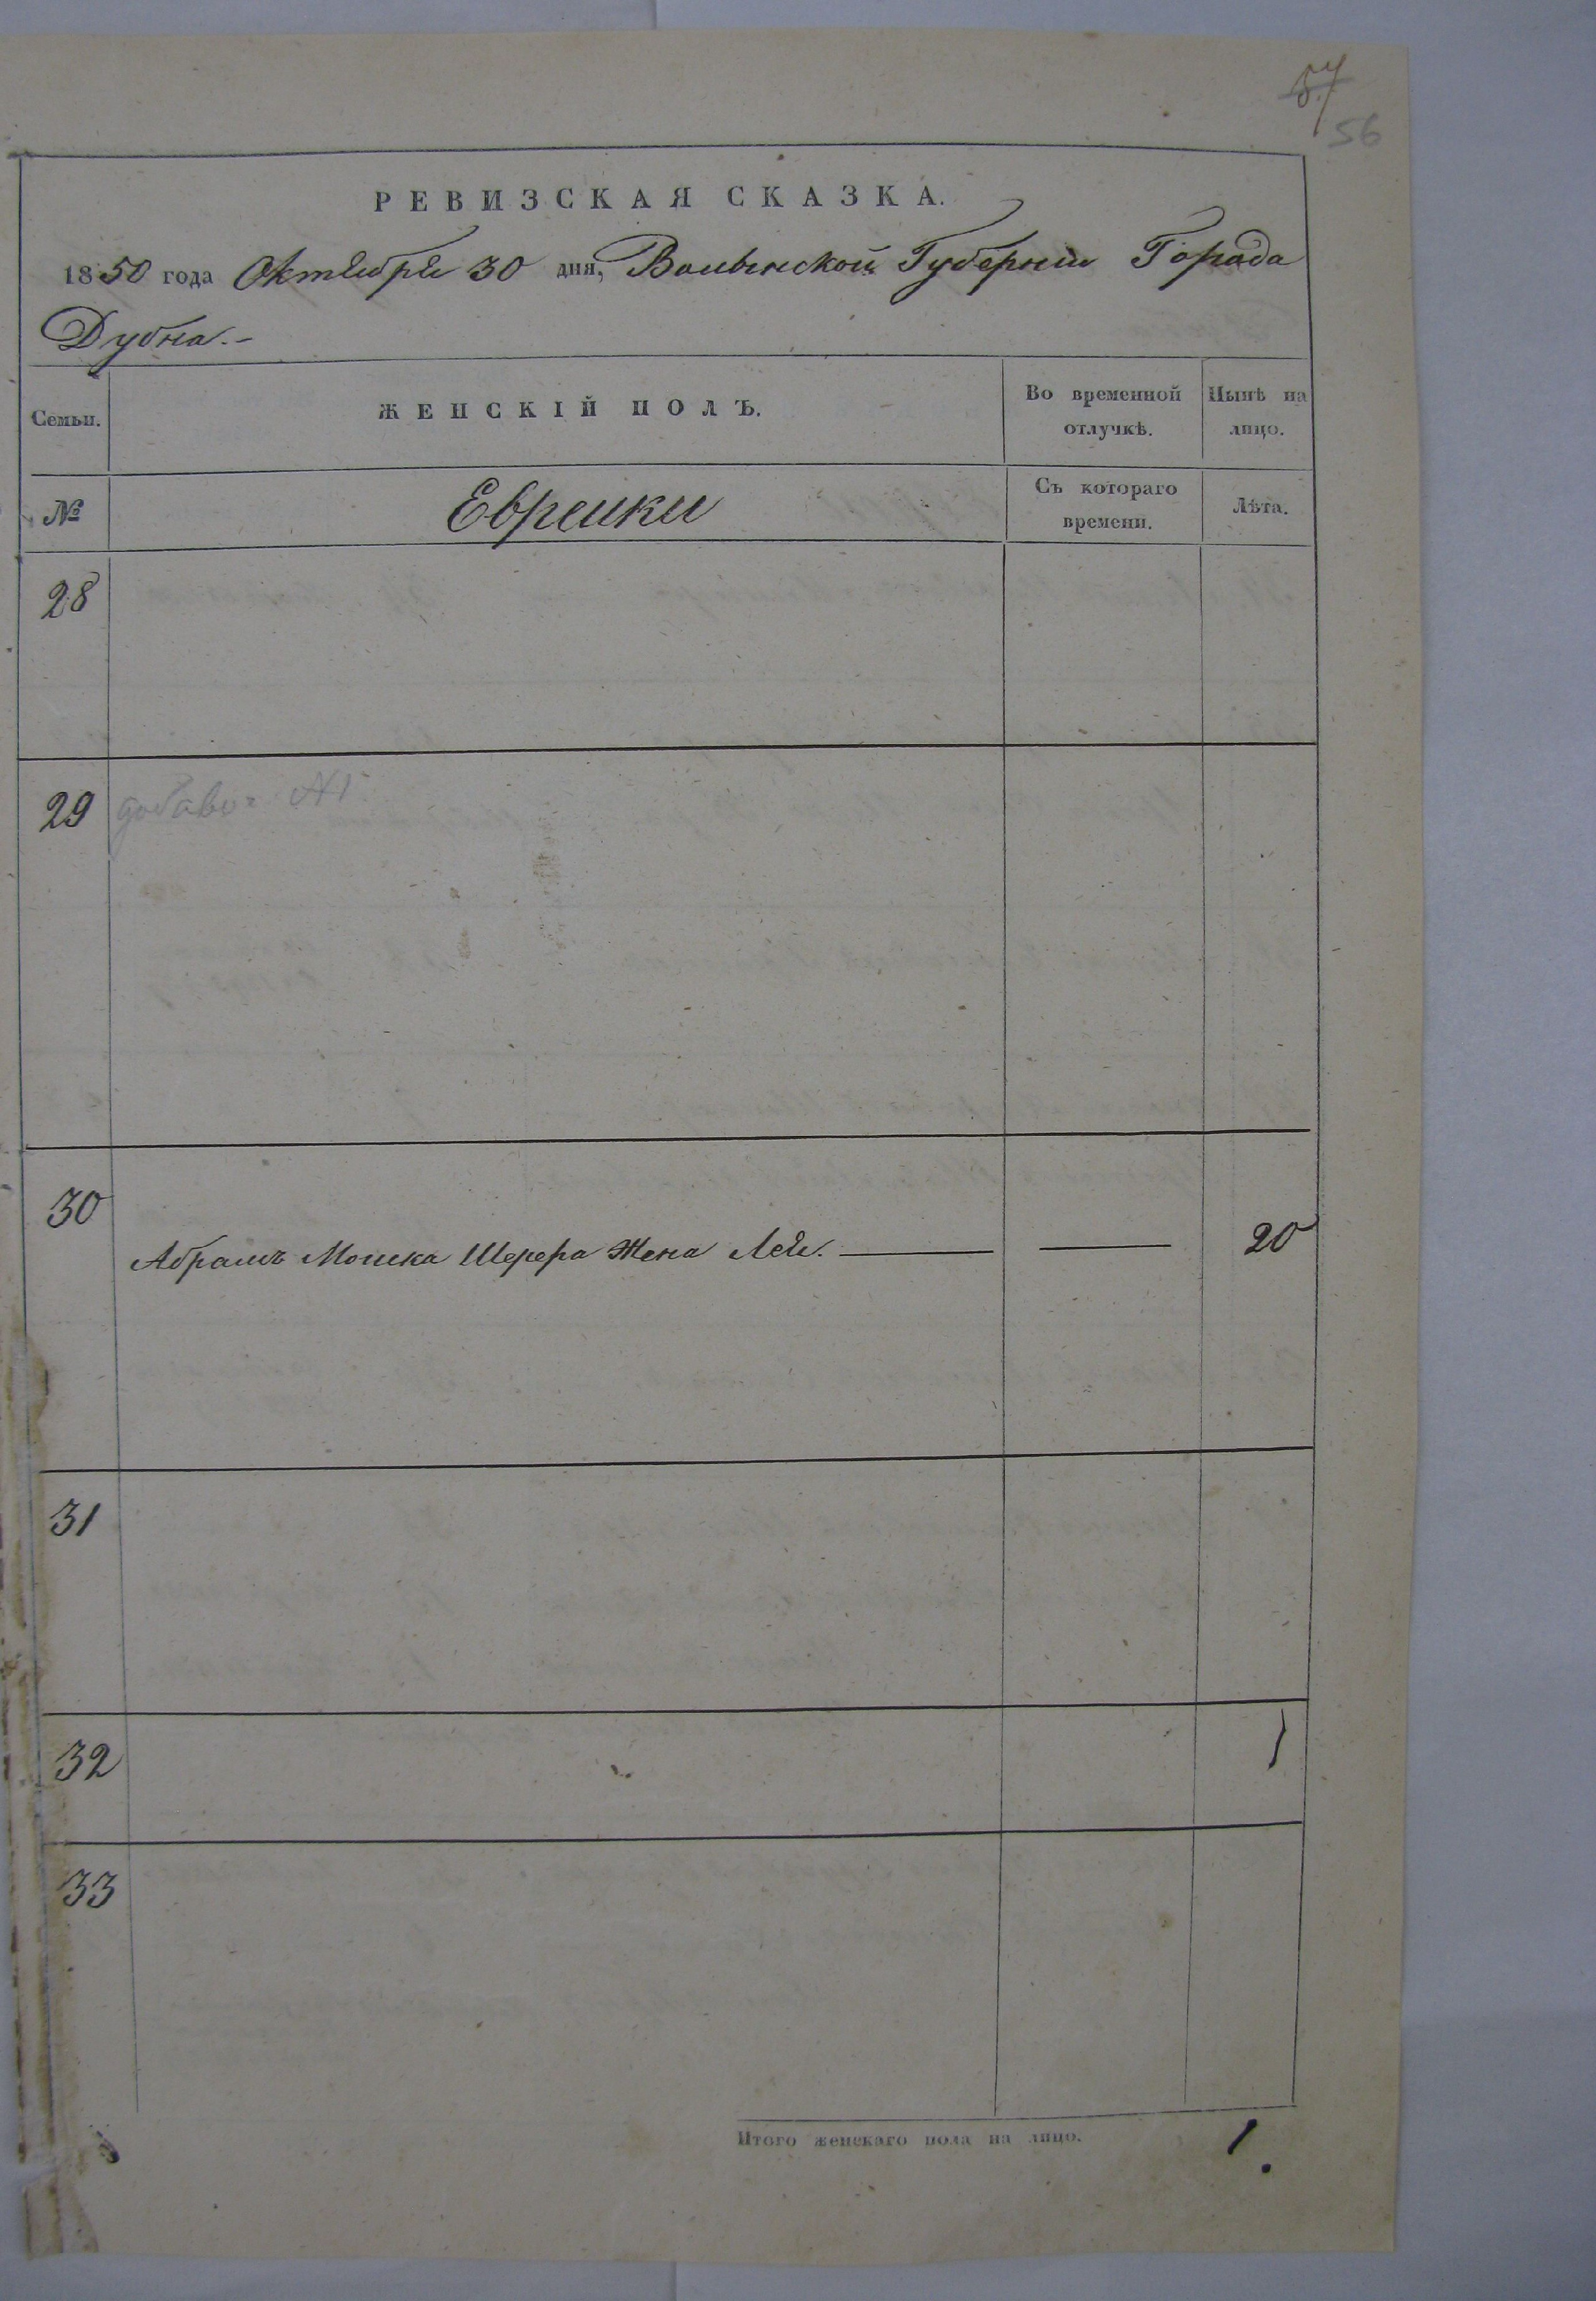 57
56
РЕВИЗСКАЯ СКАЗКА.
1850 года Октября 30 дня, Волынской Губернии Города
Дубна.-
Семьи.
ЖЕНСКІЙ ПОЛЪ.
Во временной
отлучкѣ.
Нынѣ на
лицо.
№
Еврейки
Съ котораго
времени.
Лѣта.
28
29 добавоч №1
30
Абрамъ Мошка Шерера Жена Лея. 20
31
32 1
33
Итого женскаго пола на лицо. 1.